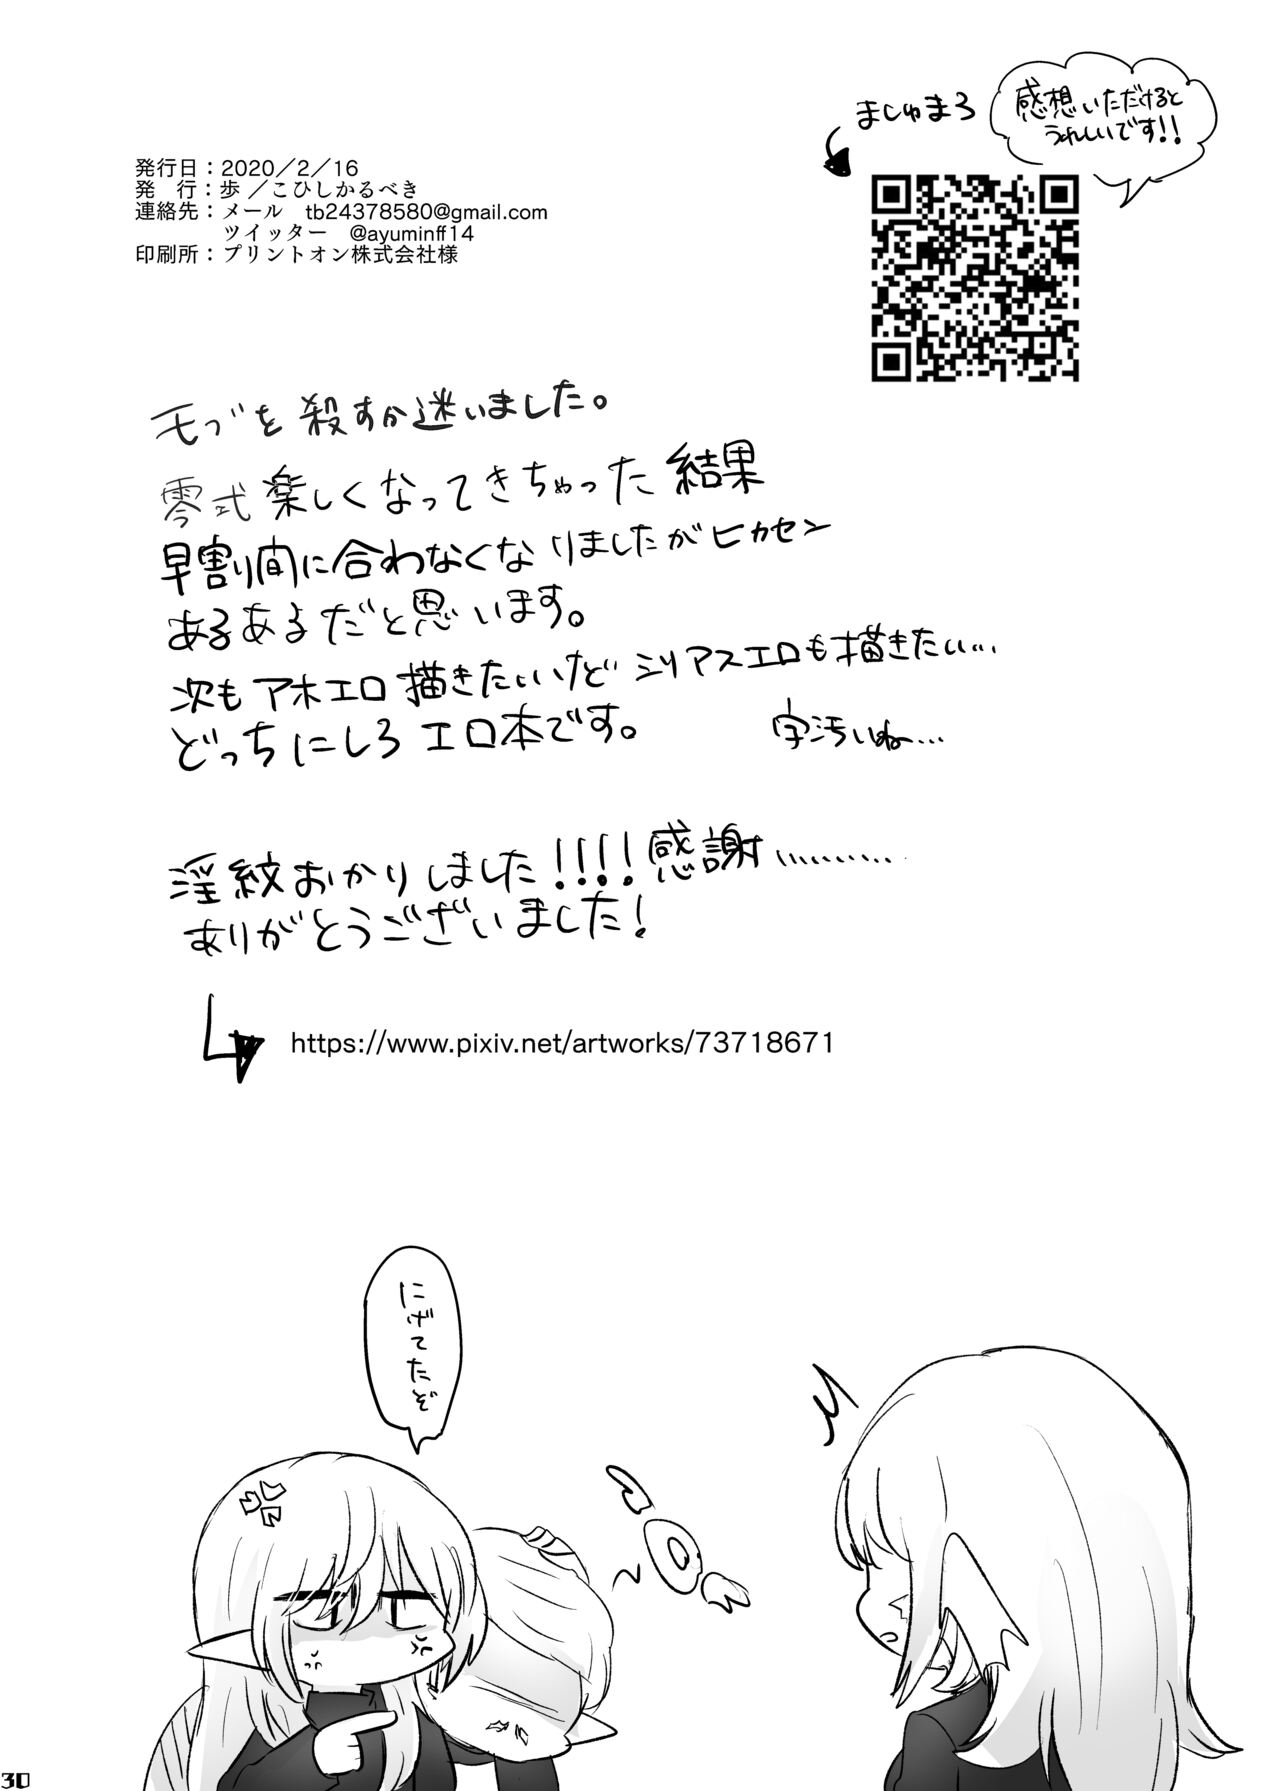 ましゅまろ
感想いただけると
うれしいです!!
発行日：2020／2／16
発　行：歩／こひしかるべき
連絡先：メール　tb24378580@gmail.com
ツイッター　@ayuminff14
印刷所：プリントオン株式会社様
モブを殺すか迷いました。
零式楽しくなってきちゃった結果
早割り間に合わなくなりましたがヒカセン
あるあるだと思います。
次もアホエロ描きたいけどシリアスエロも描きたい…
どっちにしろエロ本です。
字汚いね…
淫紋おかりしました!!!!感謝…………
ありがとうございました!
https://www.pixiv.net/artworks/73718671
にげてたぞ
30